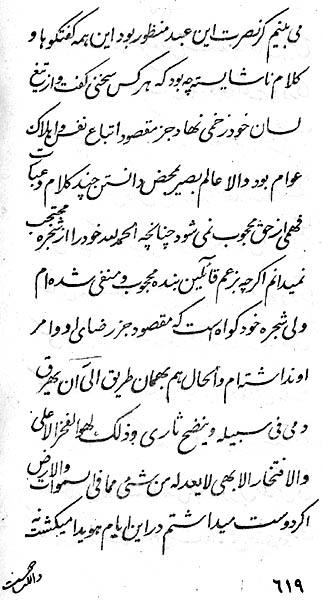 می بینم گر نصرت این عبد منظور بود این همه گفتگوها و
کلام ناشایسته چه بود که هر کس سخنی گفت و از تیغ
لسان خود زخمی نهاد جز مقصود اتباع نفس و اهلاک
عوام بود والا عالم بصیر بمحض دانستن چند کلام و عبارات
فهمی از حق محجوب نمی شود چنانچه الحمد لله خود را از شجره محتجب
نمیدانم اگر چه بزعم قائلین بنده محجوب و منفی شده ام
ولی شجره خود گواه است که مقصود جز رضای او و امر
او نداشته ام والحال هم بهمان طریق الی ان یهرق
دمی فی سبیله و ینضح ثاری و ذلک لهو الفخر الاعلی
والافتخار الابهی لا یعد له من شئی مما فی السموات والارض
اگر دوست میداشتم در این ایام هویدا میگشت نه
۶۱۹